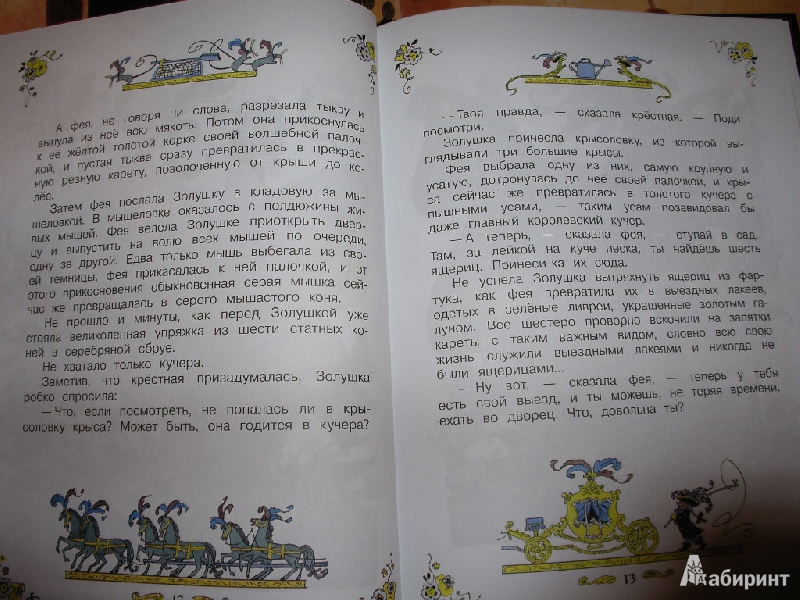 А фея, не говоря ни слова, разрезала тыкву и
вынула из неё всю мякоть. Потом она прикоснулась
к её жёлтой толстой корке своей волшебной палоч-
кой, и пустая тыква сразу превратилась в прекрас-
ную резную карету, позолоченную от крыши до ко-
лёс.
Затем фея послала Золушку в кладовую за мы-
шеловкой. В мышеловке оказалось с полдюжины жи-
вых мышей. Фея велела Золушке приоткрыть двер-
цу и выпустить на волю всех мышей по очереди,
одну за другой. Едва только мышь выбегала из сво-
ей темницы, фея прикасалась к ней палочкой, и от
этого прикосновения обыкновенная серая мышка сей-
час же превращалась в серого мышастого коня.
Не прошло и минуты, как перед Золушкой уже
стояла великолепная упряжка из шести статных ко-
ней в серебряной сбруе.
Не хватало только кучера.
Заметив, что крёстная призадумалась, Золушка
робко спросила:
— Что, если посмотреть, не попалась ли в кры-
соловку крыса? Может быть, она годится в кучера?
12
— Твоя правда, — сказала крёстная. — Поди
посмотри.
Золушка принесла крысоловку, из которой вы-
глядывали три большие крысы.
Фея выбрала одну из них, самую крупную и
усатую, дотронулась до неё своей палочкой, и кры-
са сейчас же превратилась в толстого кучера с
пышными усами, — таким усам позавидовал бы
даже главный королевский кучер.
— А теперь, — сказала фея, — ступай в сад.
Там, за лейкой на куче песка, ты найдёшь шесть
ящериц. Принеси-ка их сюда.
Не успела Золушка вытряхнуть ящериц из фар-
тука, как фея превратила их в выездных лакеев,
одетых в зелёные ливреи, украшенные золотым га-
луном. Все шестеро проворно вскочили на запятки
кареты с таким важным видом, словно всю свою
жизнь служили выездными лакеями и никогда не
были ящерицами...
— Ну вот, — сказала фея, — теперь у тебя
есть свой выезд, и ты можешь, не теряя времени,
ехать во дворец. Что, довольна ты?
13
Лабиринт